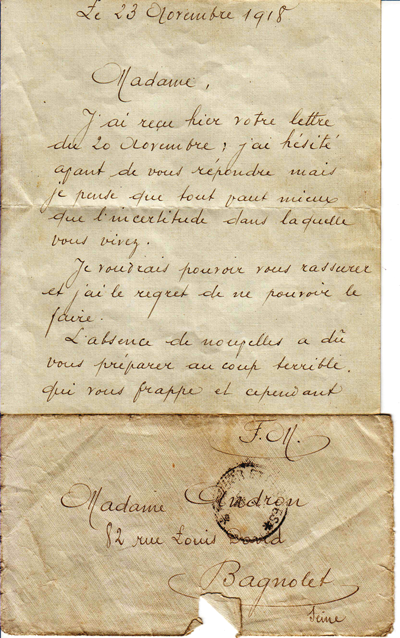 Le 23 Novembre 1918
Madame,
J'ai reçu hier votre lettre
du 20 Novembre ; j'ai hésité
avant de vous répondre mais
je pense que tout vaut mieux
que l'incertitude dans laquelle
vous vivez.
Je voudrais pouvoir vous rassurer
et j'ai le regret de ne pouvoir le
faire.
L'absence de nouvelles a dû
vous préparer au coup terrible
qui vous frappe et cependant
F. M.
Madame Andron
82 rue Louis David
Bagnolet
Seine